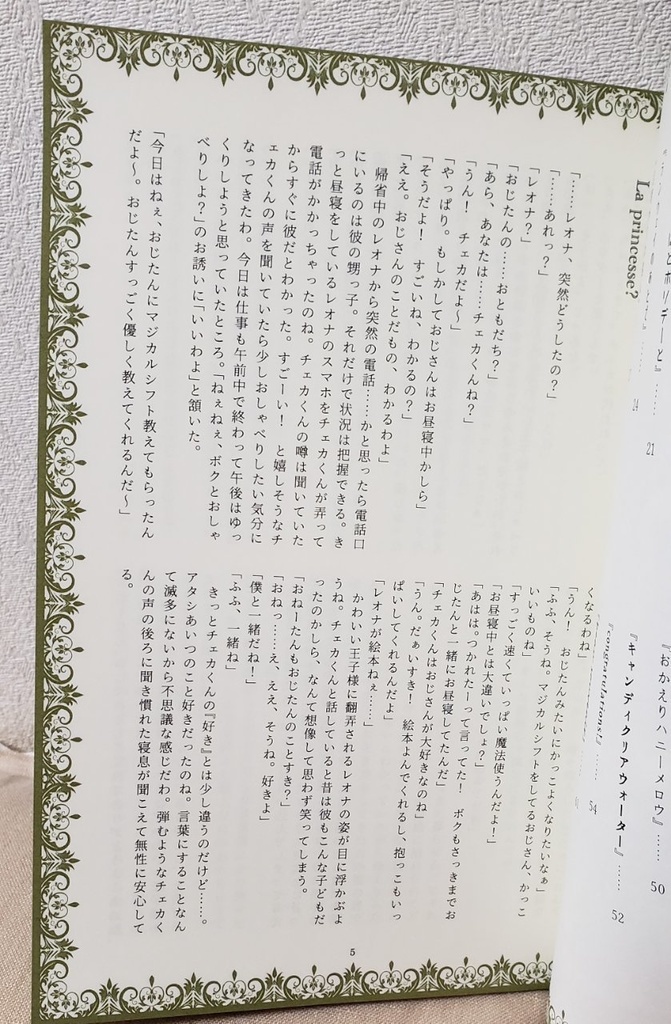 La princesse?
「……レオナ、突然どうしたの？」
「……あれっ？」
「レオナ？」
「おじたんの……おともだち？」
「あら、あなたは……チェカくんね？」
「うん！　チェカだよ〜」
「やっぱり。もしかしておじさんはお昼寝中かしら」
「そうだよ！　すごいね、わかるの？」
「ええ。おじさんのことだもの、わかるわよ」
　帰省中のレオナから突然の電話……かと思ったら電話口
にいるのは彼の甥っ子。それだけで状況は把握できる。き
っと昼寝をしているレオナのスマホをチェカくんが弄って
電話がかかっちゃったのね。チェカくんの噂は聞いていた
からすぐに彼だとわかった。すごーい！　と嬉しそうなチ
ェカくんの声を聞いていたら少しおしゃべりしたい気分に
なってきたわ。今日は仕事も午前中で終わって午後はゆっ
くりしようと思っていたところ。「ねぇねぇ、ボクとおしゃ
べりしよ？」のお誘いに「いいわよ」と頷いた。
「今日はねぇ、おじたんにマジカルシフト教えてもらったん
だよ〜。おじたんすっごく優しく教えてくれるんだ〜」
くなるわね」
「うん！　おじたんみたいにかっこよくなりたいなぁ」
「ふふ、そうね。マジカルシフトをしてるおじさん、かっこ
いいものね」
「すっごく速くていっぱい魔法使うんだよ！」
「お昼寝中とは大違いでしょ？」
「あはは。つかれたーって言ってた！　ボクもさっきまでお
じたんと一緒にお昼寝してたんだ」
「チェカくんはおじさんが大好きなのね」
「うん。だぁいすき！　絵本よんでくれるし、抱っこもいっ
ぱいしてくれるんだよ」
「レオナが絵本ねぇ……」
　かわいい王子様に翻弄されるレオナの姿が目に浮かぶよ
うね。チェカくんと話していると昔は彼もこんな子どもだ
ったのかしら、なんて想像して思わず笑ってしまう。
「おねーたんもおじたんのことすき？」
「おねっ……え、ええ、そうね。好きよ」
「僕と一緒だね！」
「ふふ、一緒ね」
　きっとチェカくんの『好き』とは少し違うのだけど……。
アタシあいつのこと好きだったのね。言葉にすることなん
て滅多にないから不思議な感じだわ。弾むようなチェカく
んの声の後ろに聞き慣れた寝息が聞こえて無性に安心して
る。
5
ホリデーと』
21
14
『おかえりハニーメロウ』……
50
『キャンディクリアウォーター』……
52
『congratulations!』……
54